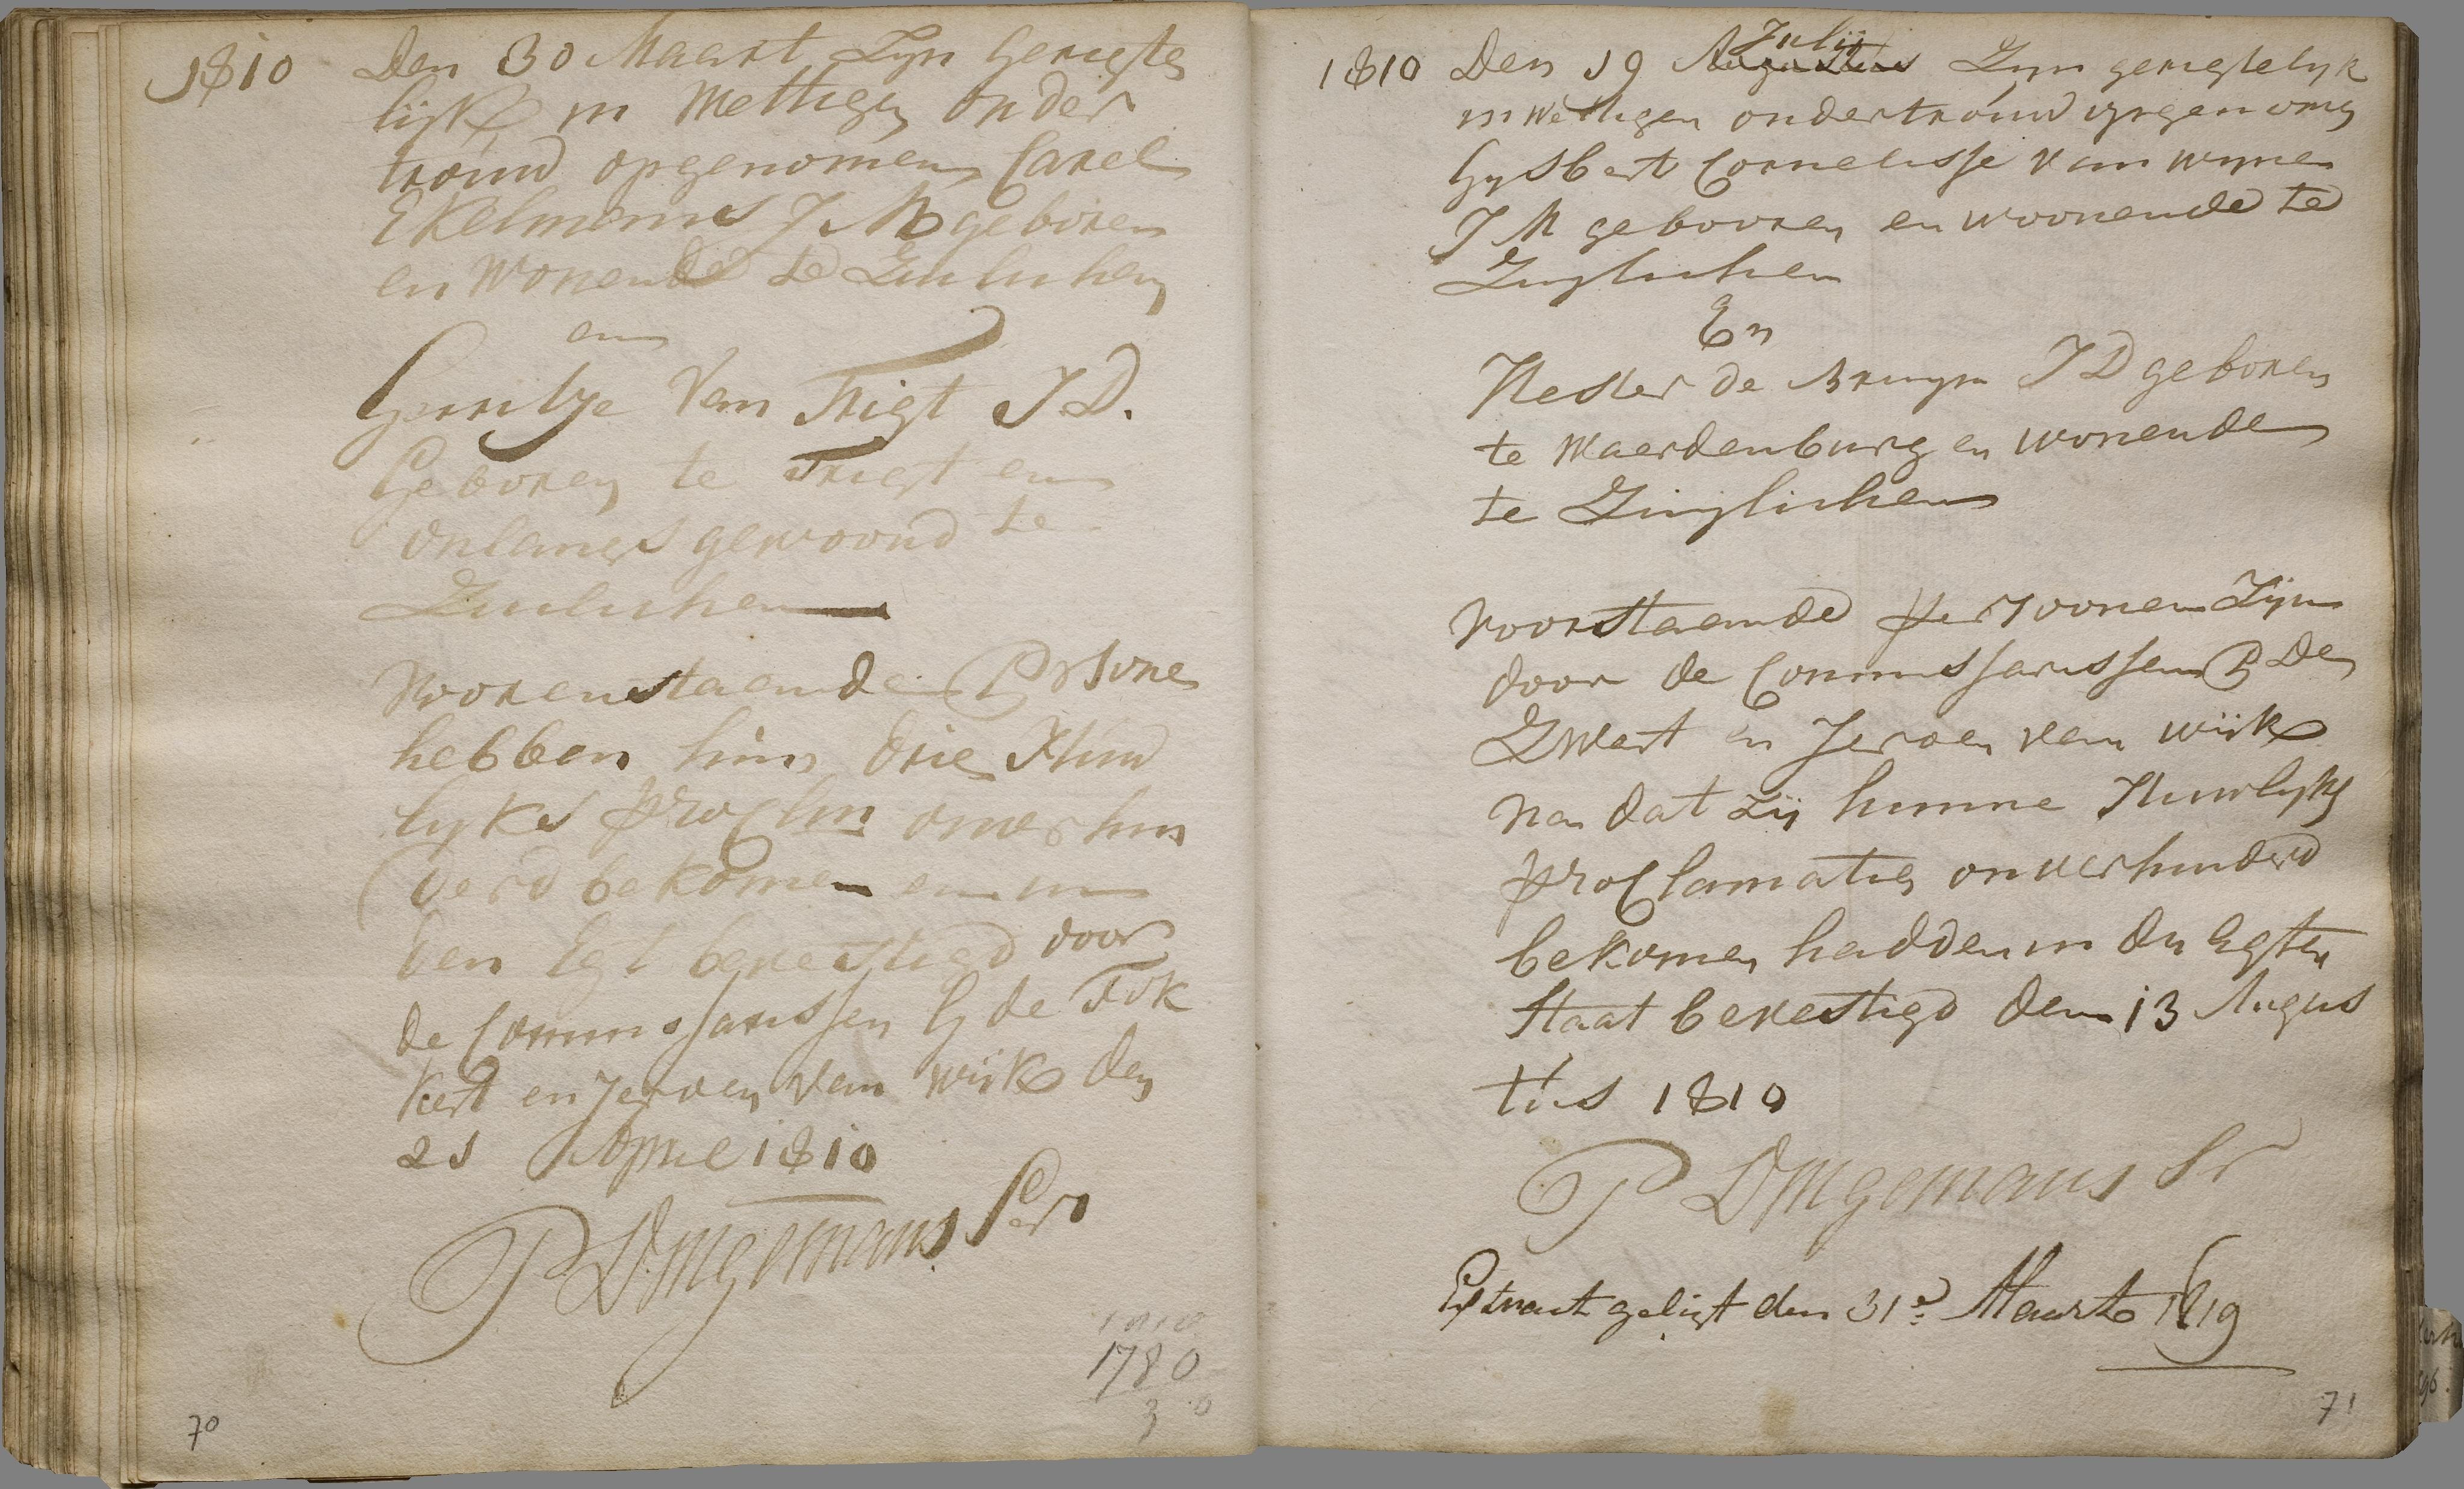 1810 Den 30 Maart Zyn Gerigte
lijk in Wettigen onder
trouw opgenomen Carel
Ekelmans J M geboren
en Wonende te Zuilichem
en
Gerritje Van Trigt J D.
Geboren te Trigt en
onlangs gewoond te
Zuilichem
Voorenstaende Persone
hebben hun drie Huw
lyks proclm onverhin
derd bekomen en in
den Egt bevestigd door
de Commissarissen G de Fok
kert en Jeroen van Wijk den
21 April 1810
P Dingemans Secr
1810
1780
30
70
1810 Den 19 Augustus Julij Zyn geregtelyk
in Wettigen ondertrouw opgenomen
Gysbert Cornelisse van Wynen
J M gebooren en woonende te
Zuylichem
En
Hester de Bruyn J D geboren
te Waerdenburg en wonende
te Zuylichem
Voorstaende persoonen Zijn
door de Commissarissen P de
Zwart en Jeroen van Wijk
na dat zij hunne Huwlyks
proclamatien onverhinderd
bekomen hadden in den Egten
Staat bevestigd den 13 Augus
tus 1810
P Dingemans Sr
Extract geligt den 31e Maart 1819
71